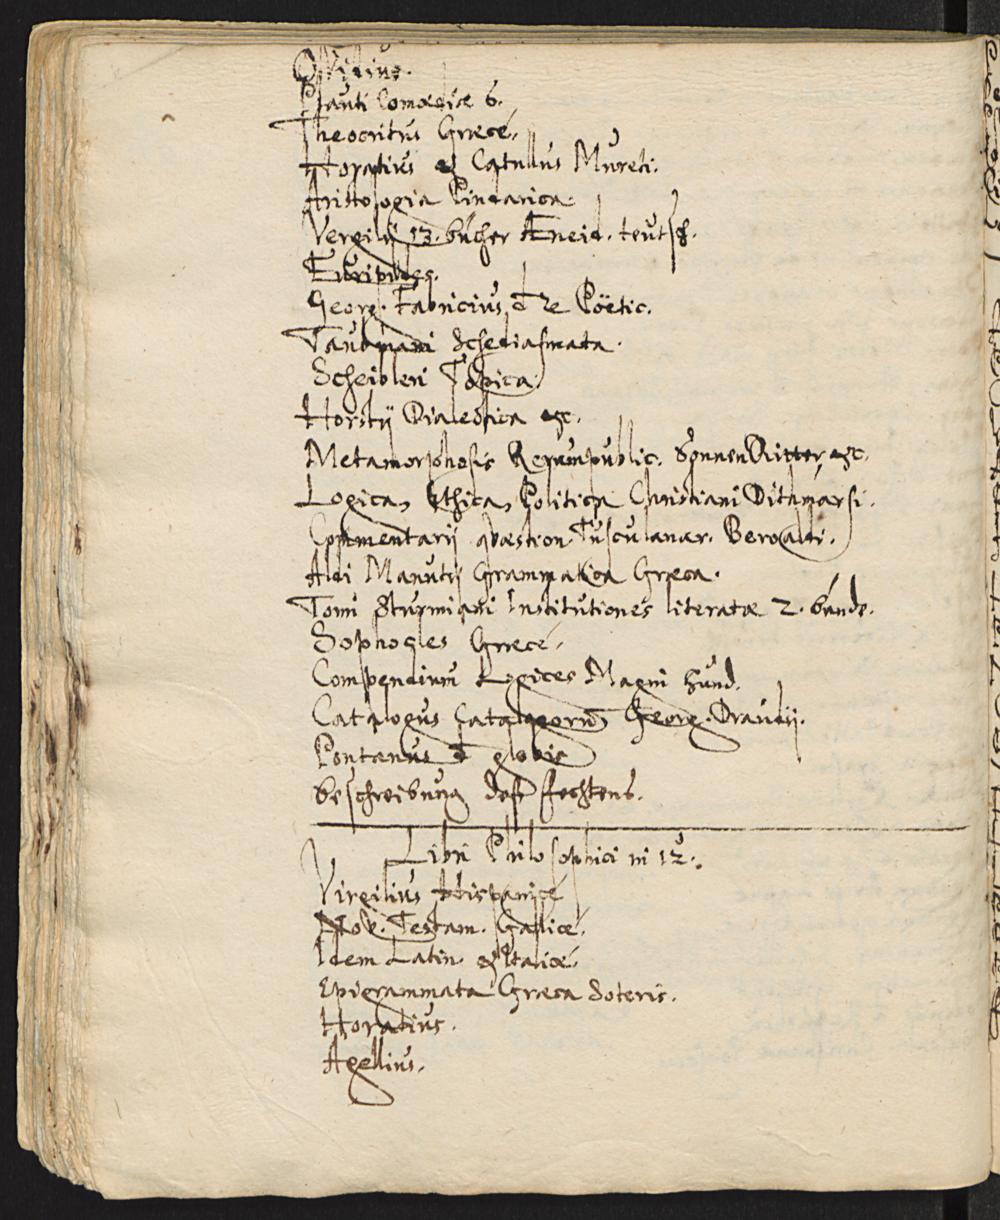 Ovidius.
Plauti Comœdiæ 6.
Theocritus Græcè.
Horatius et Catullus Mureti.
Aristologia Pindarica.
Vergilij 13. bücher Æneid. teutsch.
Euripides.
Georg. Fabricius de re Poëtic.
Taubmani Schediasmata.
Scheibleri Topica.
Horstij Dialectica etc.
Metamorphosis Rerumpublic. Sonnen Ritter etc.
Logica, Ethica, Politica Christiani Dithmarsi.
Commentarij quæstion. Tusculanar. Beroaldi.
Aldi Manutij Grammatica Græca.
Tomi Sturmiani Institutiones literatæ 2. bände.
Sophocles Græcè.
Compendium Logices Magni Hund.
Catalogus Catalogorum Georg. Draudij.
Pontanus de globis
beschreibung deß fechtens.
Libri Philosophici in 12.
Virgilius Hispanicè
Nov. Testam. Gallicè.
Idem Latin. et Italicè.
Epigrammata Græca Soteris.
Horatius.
Agellius.